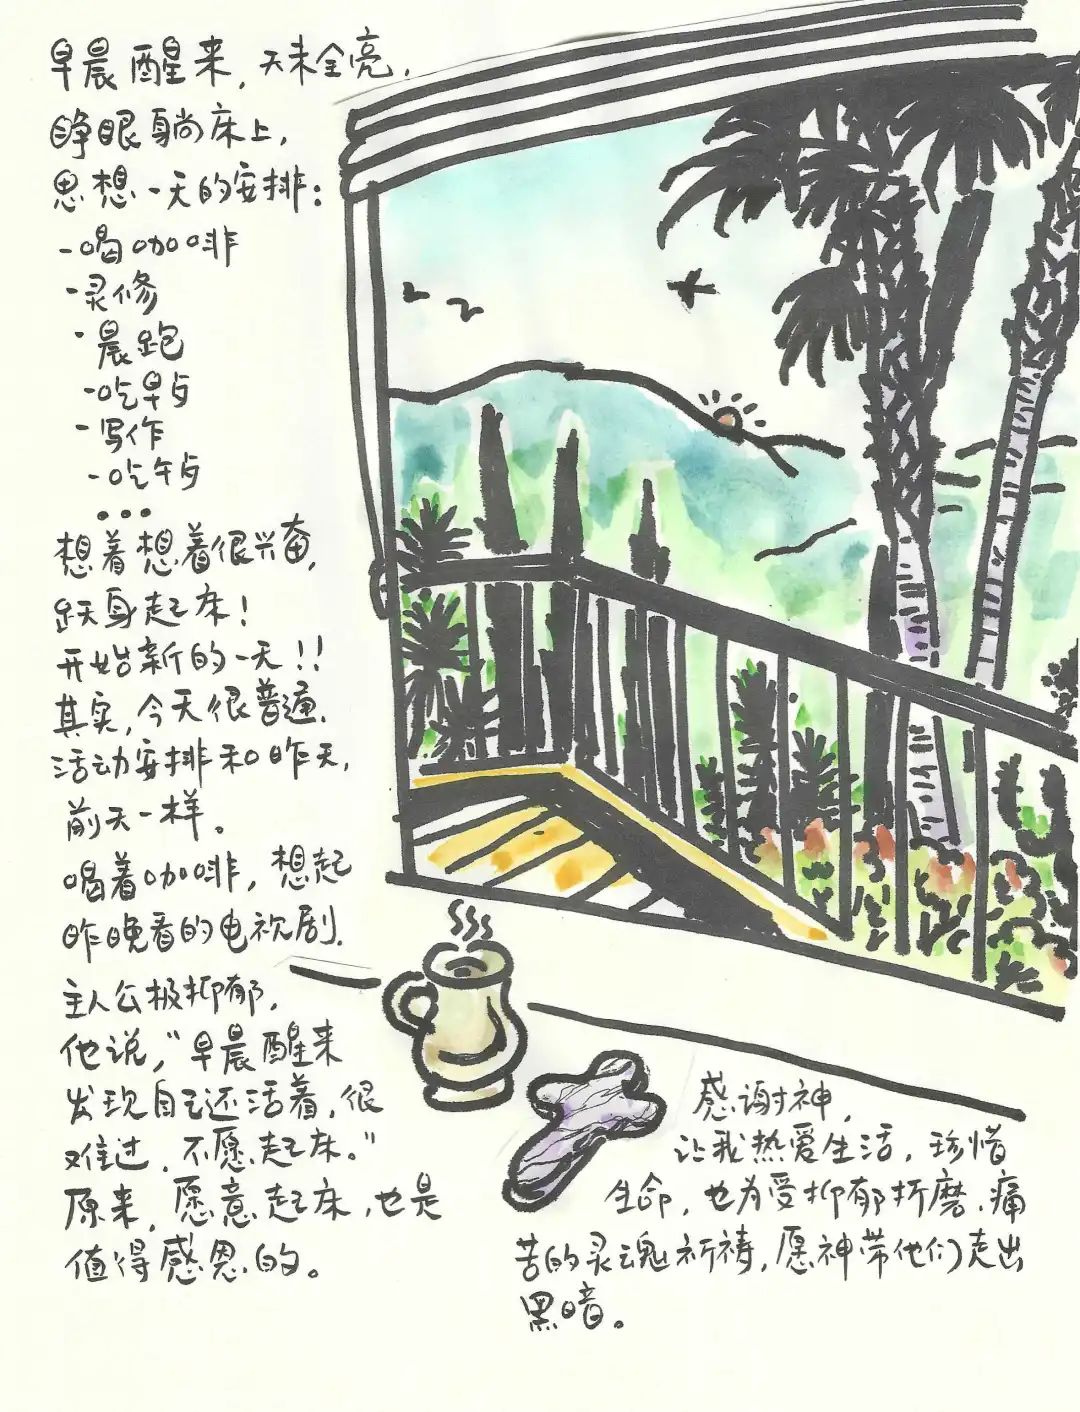 早晨醒来，天未全亮，
睁眼躺床上，
思想一天的安排：
-喝咖啡
-灵修
-晨跑
-吃早点
-写作
-吃午点
•••
想着想着很兴奋，
跃身起床！
开始新的一天！！
其实，今天很普通，
活动安排和昨天，
前天一样。
喝着咖啡，想起
昨晚看的电视剧，
主人公极抑郁，
他说，“早晨醒来
发现自己还活着，很
难过，不愿起床。”
原来，愿意起床，也是
值得感恩的。
感谢神，
让我热爱生活，珍惜
生命，也为受抑郁折磨、痛
苦的灵魂祈祷，愿神带他们走出
黑暗。